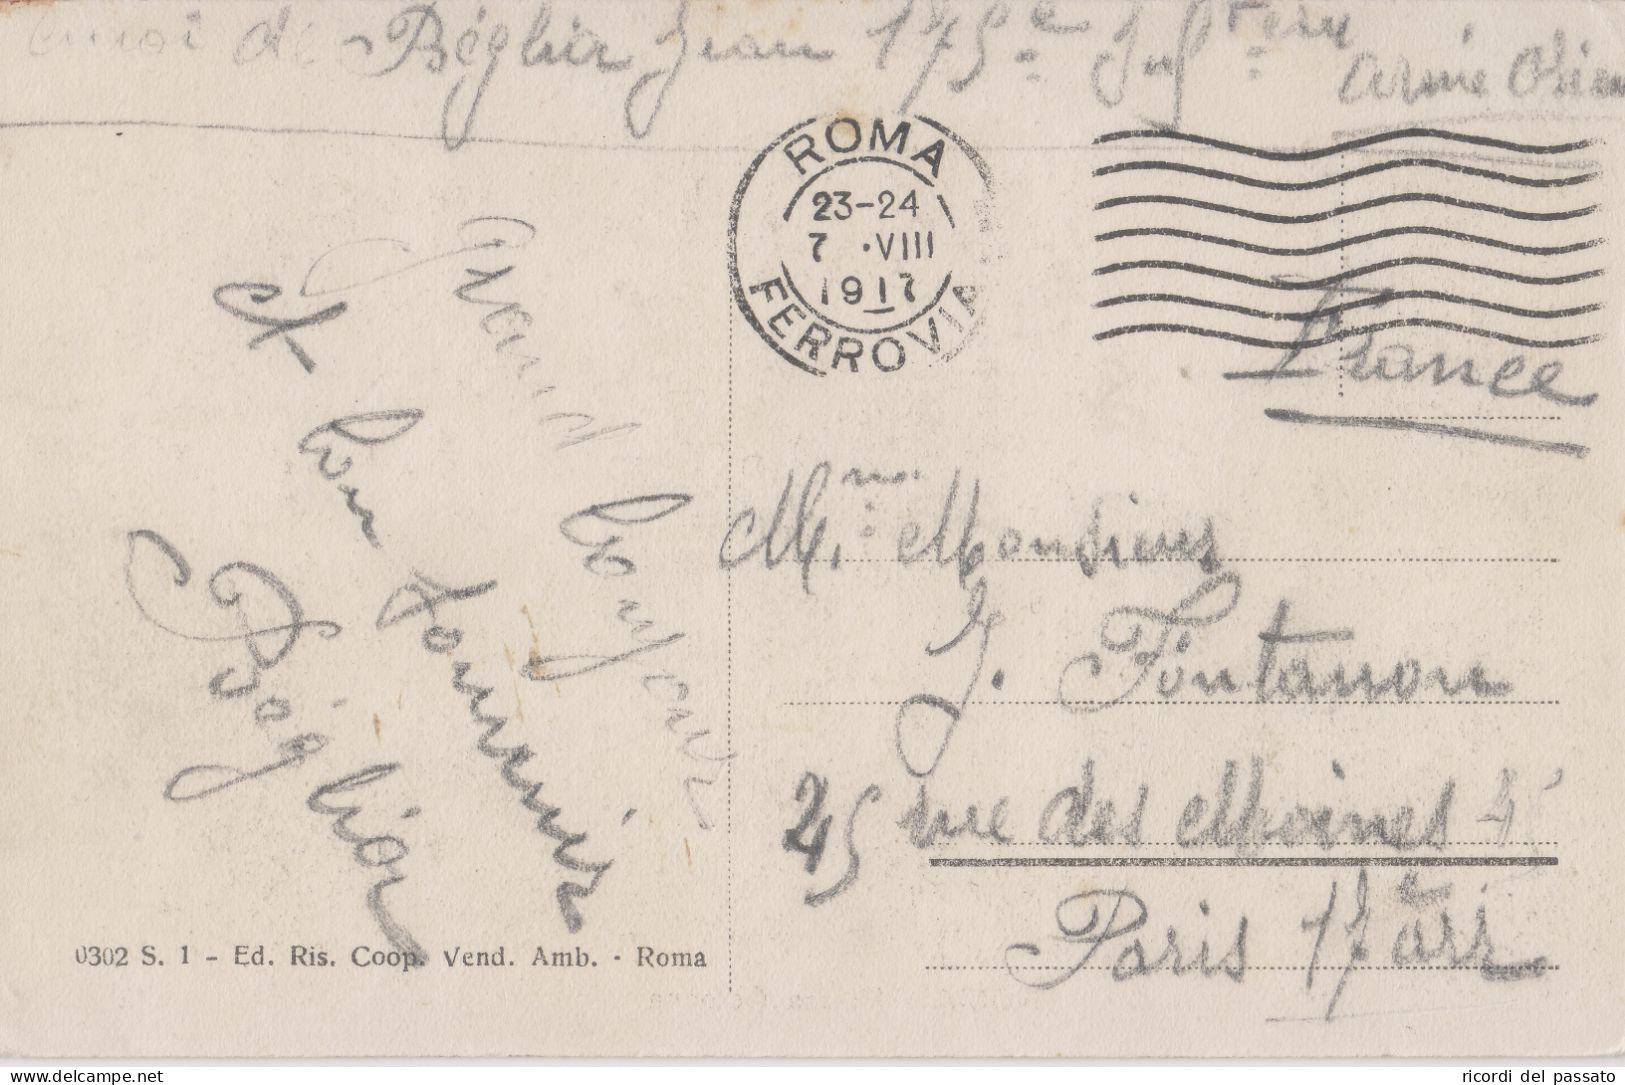 envoi de Béglia Jean 175e Infterie
armée Orien
ROMA
23-24
7 ·VIII
1917
FERROVIA
France
Grand bonjour
et bon
Béglia
Mme Monsieur
J. Fontanon
45 rue des Moines 45
Paris 17e arr
0302 S. 1 - Ed. Ris. Coop. Vend. Amb. - Roma
Delcampe.net
ricordi del passato